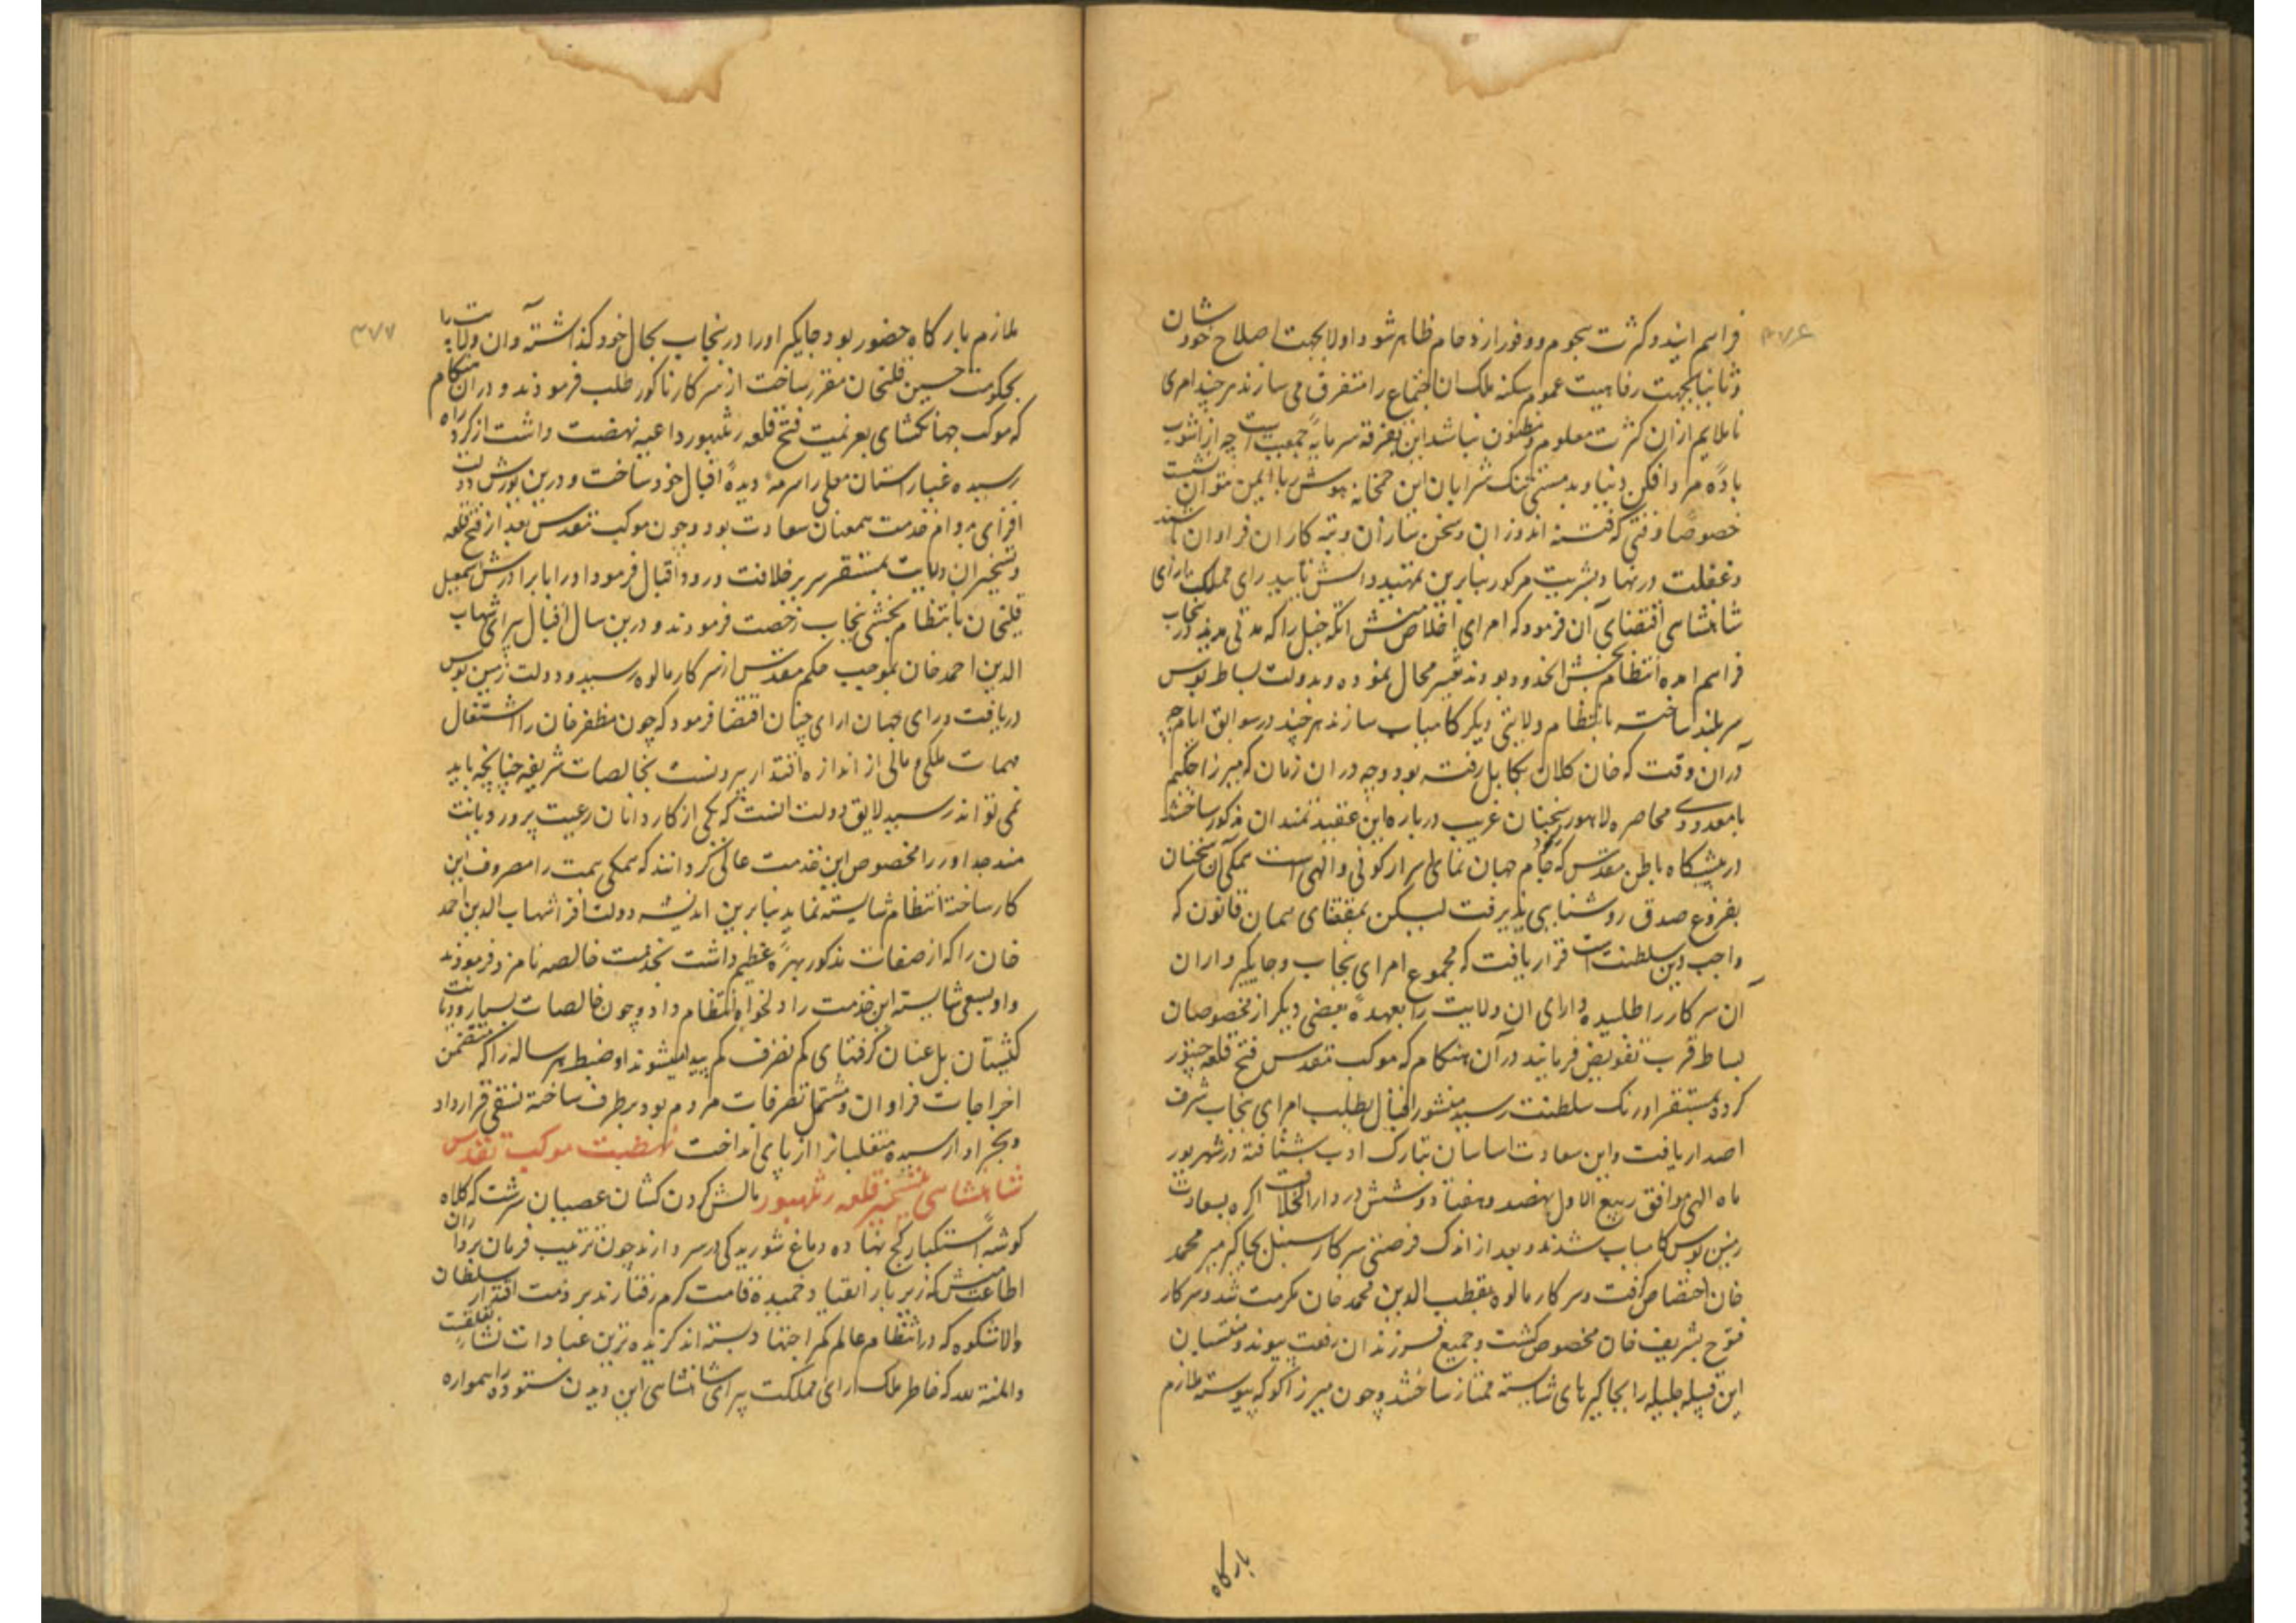 ۳۷۶
فراهم آیند و کثرت هجوم و وفور ازدحام ظاهر شود اولا بجهت اصلاح خود شان
و ثانیا بجهت رفاهیت عموم سکنه ملک آن اجتماع را متفرق می سازند هر چند امری
ناملایم از ان کثرت معلوم و مظنون نباشد این تفرقه سرمایهٔ جمعیت است چه از آشوب
بادهٔ مرد افکن دنیا و بدمستی تنک شرابان این خمخانه هوش ربا ایمن نتوان نشست
خصوصا وقتی که فتنه اندوزان و سخن سازان و تبه کاران فراوان باشند
و غفلت در نهاد بشریت مرکوز بنابرین تمهید دانش تایید رای مملکت ارای
شاهنشاهی اقتضای آن فرمود که امرای اخلاص منش اتکه خیل را که مدتی مدید در پنجاب
فراهم امده انتظام بخش انحدود بودند تغییر محال نموده و بدولت بساط بوس
سربلند ساخته بانتظام ولایتی دیگر کامیاب سازند هر چند در سوابق ایام چه
دران وقت که خان کلان بکابل رفته بود و چه در ان زمان که میرزا حکیم
با معدودی محاصره لاهور سخنان غریب درباره این عقیدتمندان مذکور ساختند
در پیشگاه باطن مقدس که جام جهان نمای اسرار کونی و الهی است همگی آن سخنان
بفروغ صدق روشنایی نپذیرفت لیکن بمقتضای همان قانون که
واجب دین سلطنت است قرار یافت که مجموع امرای پنجاب و جایگیرداران
آن سرکار را طلبیده دارای ان ولایت را بعهدهٔ بعضی دیگر از مخصوصان
بساط قرب تفویض فرمایند در آن هنکام که موکب مقدس فتح قلعه چیتور
کرده بمستقر اورنک سلطنت رسید منشور اقبال بطلب امرای پنجاب شرف
اصدار یافت و این سعادت اساسان بتارک ادب شتافته در شهریور
ماه الهی موافق ربیع الاول نهصد و هفتاد و شش در دار الخلافت اکره بسعادت
زمین بوس کامیاب شدند و بعد از اندک فرصتی سرکار سنبل بجاگیر میر محمد
خان اختصاص گرفت و سرکار مالوه بقطب الدین محمد خان مکرمت شد و سرکار
قنوج بشریف خان مخصوص گشت و جمیع فرزندان رفعت پیوند و منتسبان
این قبیله جلیله را بجاگیرهای شایسته ممتاز ساختند و چون میرزا کوکه پیوسته ملازم
بارگاه
۳۷۷
ملازم بارگاه حضور بود جایگیر او را در پنجاب بحال خود گذاشته و آن ولایت را
بحکومت حسین قلیخان مقرر ساخت از سرکار ناکور طلب فرمودند و دران هنکام
که موکب جهانگشای بعزیمت فتح قلعه رنتهبور داعیه نهضت داشت از گرد راه
رسیده غبار استان معلی را سرمهٔ دیدهٔ اقبال خود ساخت و درین یورش دولت
افزای بدوام خدمت همعنان سعادت بود و چون موکب مقدس بعد از فتح قلعه
و تسخیر ان ولایت بمستقر سریر خلافت ورود اقبال فرمود او را با برادرش اسمعیل
قلیخان بانتظام بخشی پنجاب رخصت فرمودند و درین سال اقبال پیرای شهاب
الدین احمد خان بموجب حکم مقدس از سرکار مالوه رسید و دولت زمین بوس
دریافت و رای جهان ارای چنان اقتضا فرمود که چون مظفر خان را اشتغال
مهمات ملکی و مالی از اندازه اقتدار بیرونست بخالصات شریفه چنانچه باید
نمی تواند رسید لایق دولت انست که یکی از کاردانان رعیت پرور دیانت
مند جد اور را مخصوص این خدمت عالی گردانند که همگی همت را مصروف این
کار ساخته انتظام شایسته نماید بنابرین اندیشه دولت افزا شهاب الدین احمد
خان را که از صفات مذکور بهرهٔ عظیم داشت بخدمت خالصه نامزد فرمودند
و او بسعی شایسته این خدمت را دلخواه انتظام داد و چون خالصات بسیار و دیانت
کیشان بل عنان گرفتهای کم تصرف کم پیدا میشوند او ضبط هر ساله را که متضمن
اخراجات فراوان و مشتمل تصرفات مردم بود برطرف ساخته نسقی قرار داد
و بجز او ارسیده متغلبانرا از پای انداخت نهضت موکب مقدس
شاهنشاهی بتسخیر قلعه رنتهبور مالش گردن کشان عصیان سرشت که کلاه
گوشهٔ استکبار کج نهاده دماغ شوریدگی در سر دارند چون ترتیب فرمان برداران
اطاعت منش که زیر بار انقیاد خمیده قامت گرم رفتارند بر ذمت اقتدار سلطان
والاشکوه که در انتظام عالم کمر اجتهاد بسته اند گزیده ترین عبادات نشاء تعلقست
و المنة لله که خاطر ملک ارای مملکت پیرای شاهنشاهی این دیدن ستوده را همواره